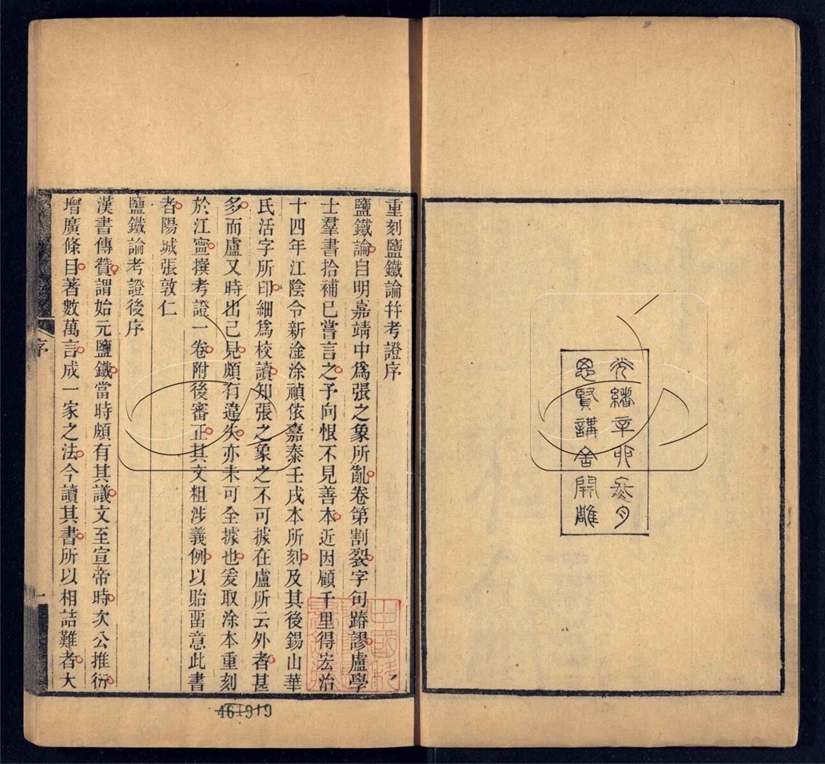 光緒辛卯季月
思賢講舍開雕
重刻鹽鐵論并考證序
鹽鐵論自明嘉靖中爲張之象所亂卷第割裂字句踳謬盧學
士羣書拾補已嘗言之予向恨不見善本近因顧千里得宏治
十四年江陰令新淦涂禎依嘉泰壬戌本所刻及其後錫山華
氏活字所印細爲校讀知張之象之不可據在盧所云外者甚
多而盧又時出己見頗有違失亦未可全據也爰取涂本重刻
於江寧撰考證一卷附後審正其文粗涉義例以貽畱意此書
者陽城張敦仁
鹽鐵論考證後序
漢書傳贊謂始元鹽鐵當時頗有其議文至宣帝時次公推衍
增廣條目著數萬言成一家之法今讀其書所以相詰難者大
序
一
461919